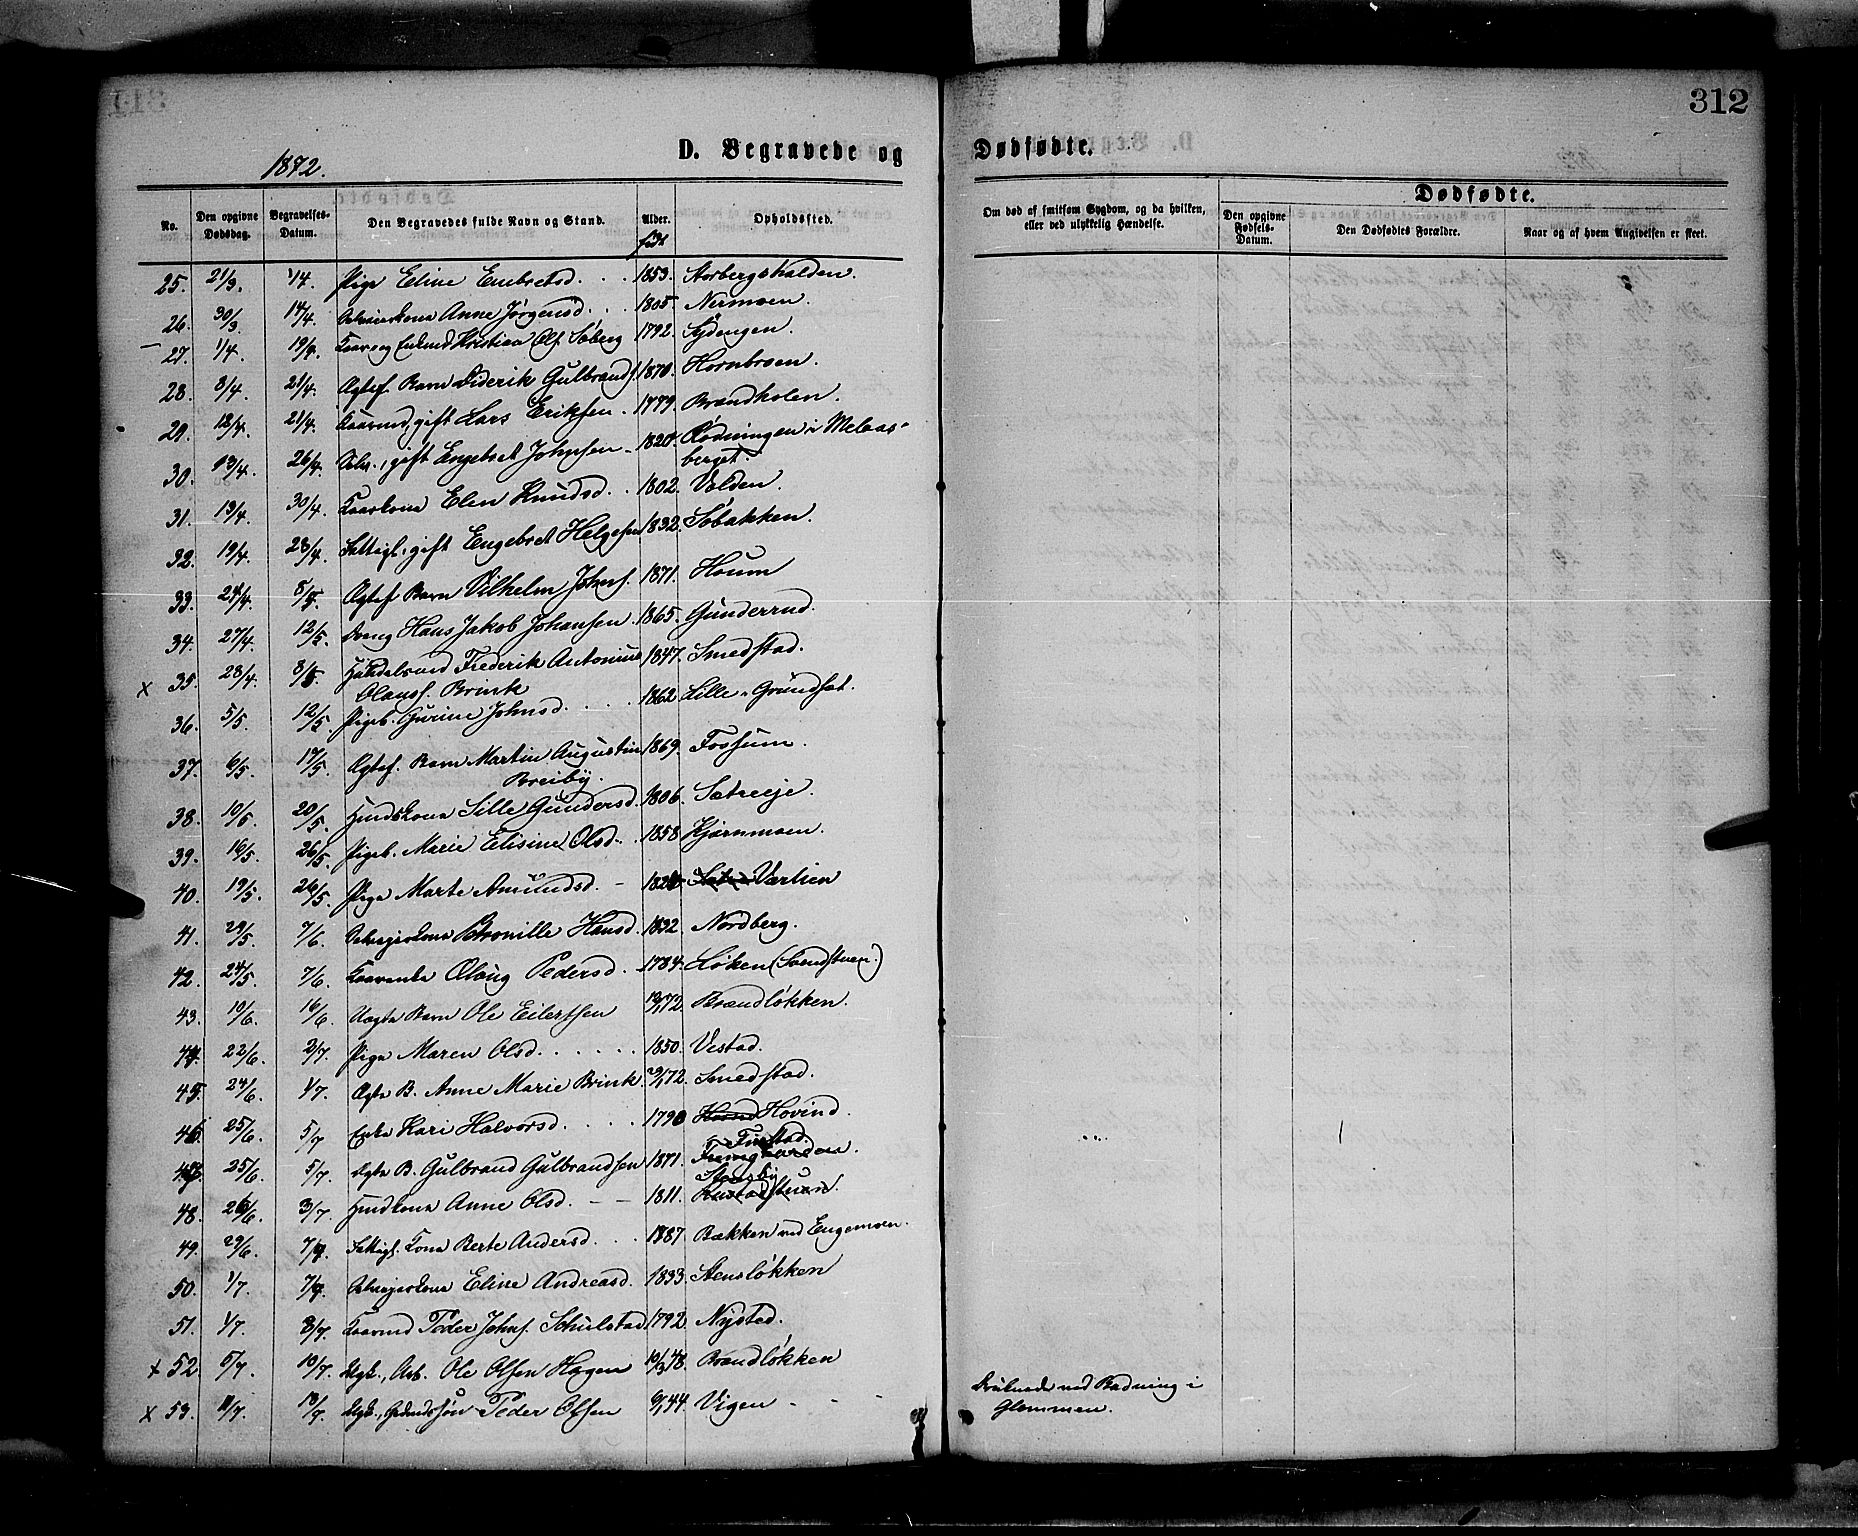 312
1872.
D. Begravede og Dødfødte.
No.
Den opgivne Dødsdag.
Begravelses-Datum.
Den Begravedes fulde Navn og Stand.
Alder.
født
Opholdssted.
Om død af smitsom Sygdom, og da hvilken, eller ved ulykkelig Hændelse.
Dødfødte.
Den opgivne Fødsels-Datum.
Den Dødfødtes Forældre.
Naar og af hvem Angivelsen er skeet.
25. 21/3. 1/4. Pige Eline Enebretsd. 1853. Storbergshalden.
26. 30/3 14/4. Anne Jørgensd. 1805. Nermoen.
27. 1/4. 19/4. Kristian Ols. Søberg 1792. Sydengen.
28. 8/4. 21/4. Ægtef. Barn Diderik Gulbrands. 1870. Hornbroen.
29. 12/4. 21/4. Kaarmd, gift Lars Eriksen. 1779. Brændholen.
30. 13/4. 26/4. Selv., gift Engebret Johnsen 1820. Rødningen i Melaas-
berget.
31. 13/4. 30/4. Kaarkona Elen Knudsd. 1802. Volden.
32. 19/4. 28/4. Fattigl., gift Engebret Helgesen 1832. Søbakken.
33. 24/4. 8/5. Ægtef. Barn Vilhelm Johns. 1871. Houm
34. 27/4. 12/5. Dreng Hans Jakob Johansen. 1865. Gunderrud.
x 35. 28/4. 8/5. Handelsmd Frederik Antonius 1847. Smedstad.
Olauss. Brink
36. 5/5. 12/5 Pigeb. Gurine Johnsd. 1862. Lille-Grundset.
37. 6/5. 17/5. Ægtef. Barn Martin Augustin 1869. Fossum.
Breiby.
38. 10/5. 20/5. Husmdskona Sille Gundersd. 1806. Sætreeje.
39. 16/5. 26/5. Pigeb. Marie Elisine Olsd. 1858. Kjernmoen.
40. 19/5. 26/5. Pige Marte Amundsd. Værlien
41. 29/5. 7/6. Selveierkona Petronille Hansd. 1832. Nordberg.
42. 24/5. 7/6. Kaarenke Oloug Pedersd. 1784. Løken (Svendstuen.)
43. 10/6. 16/6. Uægte Barn Ole Eilertsen 72. Brændløkken.
44. 22/6. 2/7. Pige Maren Olsd. 1850. Vestad.
45. 24/6. 1/7. Ægte B. Anne Marie Brink. 72. Smedstad.
46. 25/6. 5/7 Enke Kari Halvorsd. 1790 Hovind.
47. 25/6. 5/7. Ægte B. Gulbrand Gulbrandsen 1871. Fremgaarden.
48. 26/6. 3/7. Husmdkona Anne Olsd. 1811.
49. 29/6. 7/7. Fattigl. Kona Berte Andersd. Bækken ved Engemoen.
50. 1/7. 7/7. Selveierkona Eline Andreasd. 1833. Stensløkken
51. 1/7. 8/7. Kaarmd Peder Johns. Schulstad 1792. Nystad.
x 52. 5/7. 10/7. Ugb., Arb. Ole Olsen Hagen 10/3 48. Brændløkken
x 53. 11/7. 13/7. Ugb., Grdmdssøn Peder Olsen 6/1 44. Vigen
Druknede ved Badning i
Glommen.